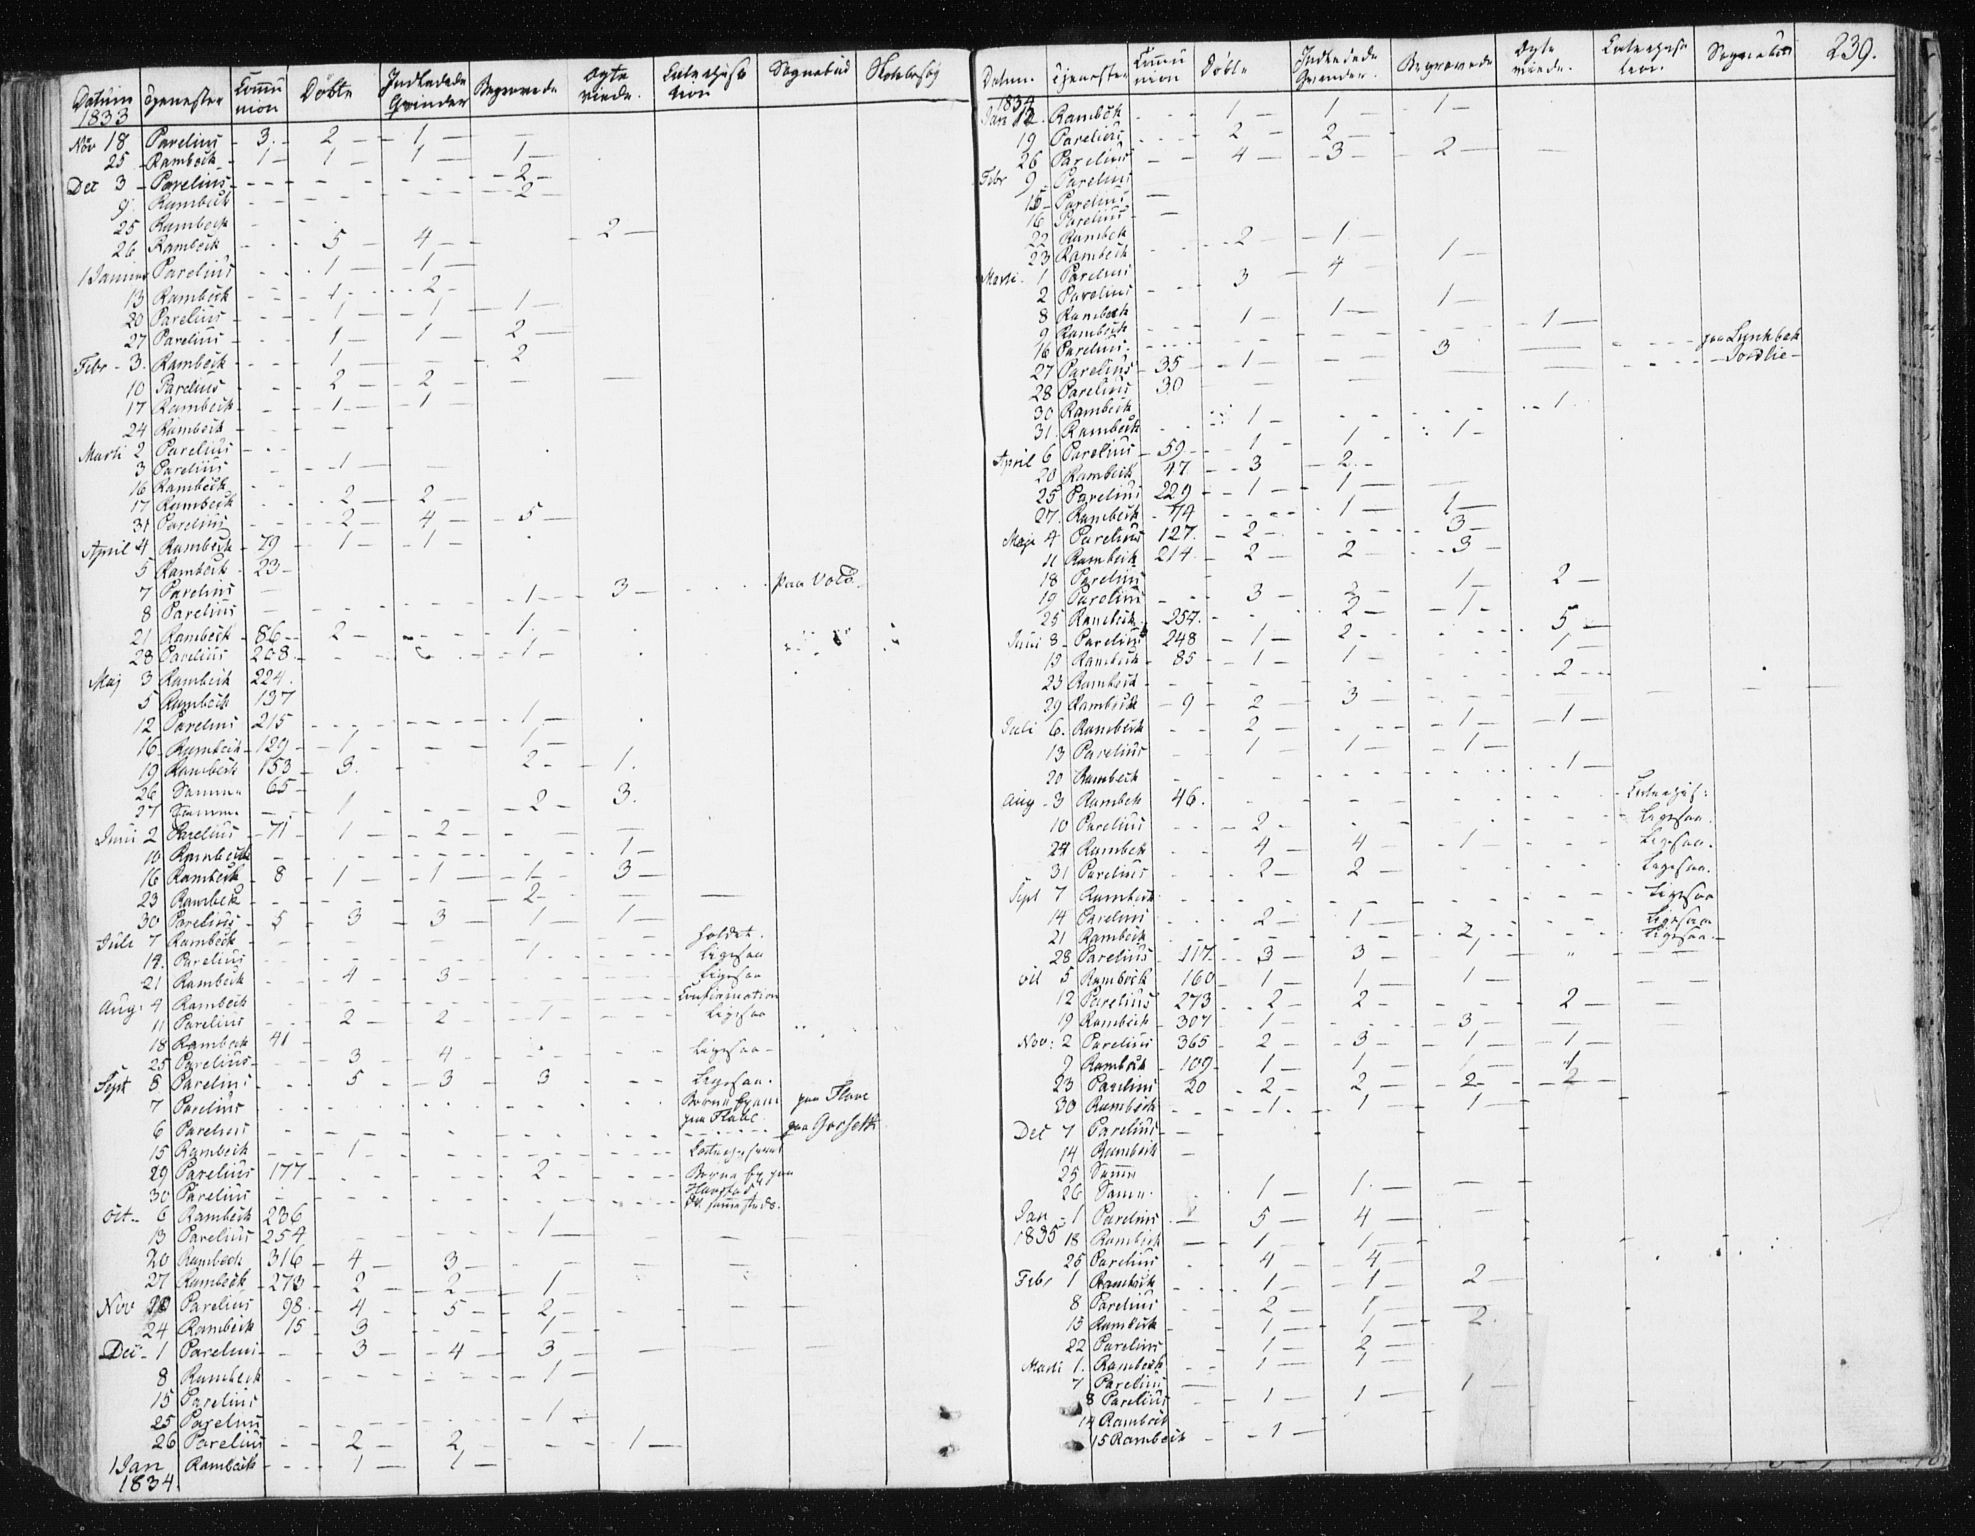 Datum Tjenester Commu Døbte Indledede Begravede Ægte Catechisa Sognebud Skolebesøg
1833 nion Qvinder viede. tion
Nov 18 Parelius - 3 - 2 - 1 - -
25 - Rambech - 1 - 1 - 1 - 1 -
Dec 3 - Parelius - - - - - 2 -
9 Rambech - - - - - 2 -
25 Rambech -
26 Rambech - - 5 - 4 - - 2 -
1 Januar Parelius - - 1 - 1 -
13 Rambech - - 1 - - 2 -
20 Parelius - - 1 - 1 - 1 -
27 Parelius - - 1 - 1 - 2 -
Febr - 3. Rambech - - 1 - - 2
10 Parelius - - 2 - 2 - - -
17 Rambech - - 1 - 1 -
24 Rambech - - -
Marti 2 Parelius - - -
3 Parelius - - 1 - -
16 Rambech - -
17 Rambech - - 2 - 2 -
31 Parelius - - 2 - 4 - - 5 -
April 4 Rambech - 79 - 1 - 1 -
5 Rambech - 23 -
7 Parelius - - - - 1 - 3 - - - paa Vold
8 Parelius -
21 Rambech - 86 - - 2 - - - 1 -
28 Parelius 208 - - - - 1 -
Maj 3 Rambech 224.
5 Rambech 137
12 Parelius 215 - - - - - 1 -
16 Rambech - 129 - 1 - - - 1 -
19 Rambech 153 - 3. - - 2 - 1.
26 Samme 65 -
27 Samme - 1 - - - 2 - 3.
Juni 2 Parelius - 71 - 1 - 2 - - - -
10 Rambech - - - - - - 1 -
16 Rambech - 8 - 1 - 1 - 1 - 3 -
23 Rambech - - - - - 2 - - -
30 Parelius - 5 - 3 - 3 - 1 - 1 -
Juli 7 Rambech - - - - - - - holdet.
14. Parelius - - - - 1 - - - Ligesaa
21 Rambech - - 4 - 3 - - - - Ligesaa
Aug: 4 Rambech - - - - - - - Confirmation
11 Parelius - - 2 - 2 - - 1 - - - Ligesaa
18 Rambech 41 -
25 Parelius - - 3 - 4 - - - - Ligesaa -
Sept 8 Parelius - - 5 - 3 - 3 - - - Ligesaa.
7 Parelius - - - - - - - paa Flaae
6 Parelius - - - - - - paa Flaae - paa Gorseth
15 Rambech - - 1 - - - - -
29 Parelius 177 - - - - 2 - - - -
30 Parelius - - - - - - - -
Oct - 6 Rambech 236
13 Parelius 254 - - - 1 - - - -
20 Rambech 316 - 4 - 3 - - - -
27 Rambech - 273 - 2 - 2 - 1 -
Nov 20 Parelius 98 - 4 - 5 - 2 - - - -
24 Rambech 15 - 3 - - - 1 -
Dec - 1 Parelius - - 3 - 4 - 3 - - - -
8 Rambech - - - - - 1 -
15 Parelius
25 Parelius - - - - 1 -
26 Parelius - - 2 - 2, - - - 1 -
1 Jan Rambech - - 1 - 1 -
1834.
Datum. Tjenester Commu Døbte Indledede Begravede Ægte Catechisa Sognebud 239.
1834 nion Qvinder. viede. tion.
Jan 12. Rambech - - - 1 - 1 - 1 -
19 Parelius - - - 2 - 2 -
26 Parelius - - 4 - 3 - - 2 - -
Febr 9 - Parelius -
15 - Parelius -
16 Parelius -
22 Rambech - - 2 - 1 -
23 Rambech
Marti. 1 Parelius - - 3 - 4 - 1 -
2 Parelius -
8 Rambech - - 1 - 1 - 1 -
9 Rambech - - - - - 1 -
16 Parelius. - - - - - 3 - - - - paa Lynhbek
27 Parelius - 35 - - 1 - - - - - - Jordlie -
28 Parelius 30
30 Rambech - - 1 - - - - 1.
31. Rambech
April 6 Parelius - 59 - - 1 - 1 - 1 -
20 Rambech 47 - - 3 - 2 -
25 Parelius 229 - - 1 - 1 - -
27. Rambech - 74 - - - 1 - 1 -
Maji 4 Parelius 127. - 2 - - - 3 -
11 Rambech 214 - - 2 - 2 - - 3 -
18 Parelius - - - - 1 - 2 -
19 Parelius - - 3 - 3 -
25 Rambech 254. - - 2 - 1 - 5 -
Juni 8 - Parelius 248 - 1 - 2 - - - 1 -
15 Rambech - 85 - 1 - 1 - - - 2 -
23 Rambech - - - - -
29 Rambech - 9 - 2 - 3 - - - - -
Juli 6. Rambech - - 2 - - - 1 - 1 -
13 Parelius - - 1 - 1 - 1 -
20 Rambech - - - - - - 1 -
Aug - 3 Rambech 46. - - - - - Catechis:
10 Parelius - - 2 - - - - Ligesaa.
24 Rambech - - 4 - 4 - 1 - - - Ligesaa.
31 Parelius - - 2 - 2 - - - Ligesaa.
Sept 7 Rambech - - - - - - - Ligesaa
14 Parelius - - 2 - 1 - - - Ligesaa
21 Rambech - - - - 2, - - - Ligesaa. -
28 Parelius - 117 - 3 - 3 - 1 - " - -
Oct 5 Rambech 160 - 1 - 1 - 1 - - -
12 Parelius - 273 - 2 - 2 - - - 2 - -
19 Rambech - 307 - 1 - - - 3 - -
Nov: 2 Parelius 365 - 2 - 3 - 1 - 1 -
9 Rambech - 109 - 1 - 1 - 1 - 1
23 Parelius 20 - 2 - 2 - 2 - 2 -
30 Rambech - - 1 - 1 - 1 -
Dec 7 Parelius -
14 Rambech -
25 Samme
26 Samme. - 1 - 1. - - -
Jan - 1 Parelius - - 5 - 4 - -
1835 18 Rambech - - 1 - 1 -
25 Parelius - - 4 - 4 -
Febr 1 Rambech - - 1 - 1 - 2 -
8 Parelius - - 2 - 1 - -
15 Rambech - - 1 - 1 - - 2.
22 Parelius - - 1 - 2 -
Marti 1. Rambech - - 1 - 1 -
7 Parelius - - - - 1 -
8 Parelius - - 1 - 1 -
14 Rambech
15 Rambech - - 1 -